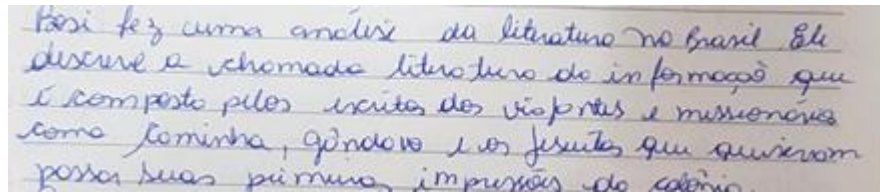 Bosi fez uma análise da literatura no Brasil Ele
descreve a chamada literatura de informação que
é composto pelos escritos dos viajantes e missionários
como Caminha, gândavo e os jesuítas que quiseram
passar suas primeiras impressões da colônia.